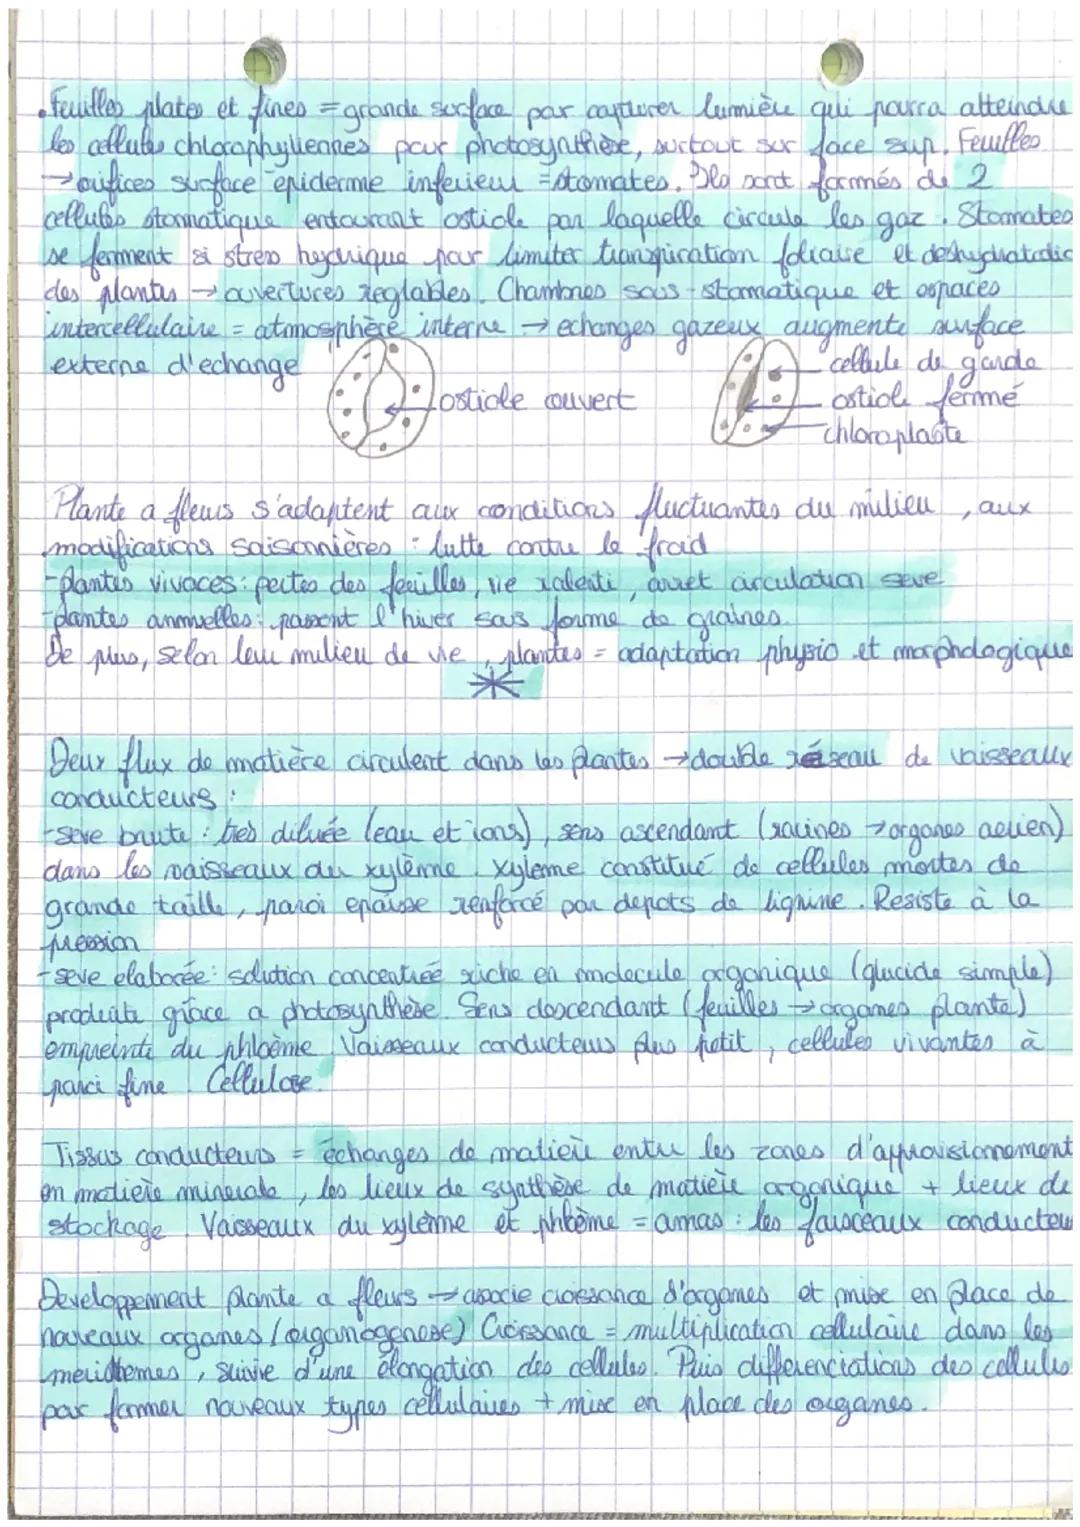 . Feuilles plates et fines = grande surface par capturer lumière qui pourra atteindre
les cellules chlorophyliennes pour photosynthèse, surtout sur face sup. Feuilles
→ orifices surface épiderme inferieur = stomates. Ils sont formés de 2
cellules stomatique entourant ostiole par laquelle circule les gaz. Stomates
se ferment si stress hydrique pour limiter transpiration foliaire et deshydratatio
des plantes → ouvertures reglables. Chambres sous-stomatique et espaces
intercellulaire = atmosphère interne → echanges gazeux augmente surface
externe d'echange
ostiole ouvert
cellule de garde
ostiole fermé
chloroplaste
Plante a fleurs s'adaptent aux conditions fluctuantes du milieu, aux
modifications saisonnières : lutte contre le froid
- plantes vivaces : pertes des feuilles, vie ralenti, arret circulation seve
- plantes annuelles : passent l'hiver sous forme de graines.
De plus, selon leur milieu de vie, plantes = adaptation physio et morphologique
Deux flux de matière circulent dans les plantes → double réseau de vaisseaux
conducteurs :
- seve brute : très diluée (eau et ions), sens ascendant (racines → organes aerien)
dans les vaisseaux du xylème. Xyleme constitué de cellules mortes de
grande taille, paroi epaisse renforcé par depots de lignine. Resiste à la
pression
- seve elaborée : solution concentreé riche en molecule organique (glucide simple)
produite grâce a photosynthèse. Sens descendant (feuilles → organes plante)
empreinte du phloème. Vaisseaux conducteurs plus petit, cellules vivantes à
paroi fine. Cellulose.
Tissus conducteurs = échanges de matière entre les zones d'approvisionnement
en matière minerale, les lieux de synthèse de matière organique + lieux de
stockage. Vaisseaux du xylème et phloème = amas : les faisceaux conducteur
Developpement plante a fleurs → associe croissance d'organes et mise en place de
nouveaux organes (organogenese) Croissance = multiplication cellulaire dans les
meristemes, suivie d'une élongation des cellules. Puis differenciations des cellules
pour former nouveaux types cellulaires + mise en place des organes.